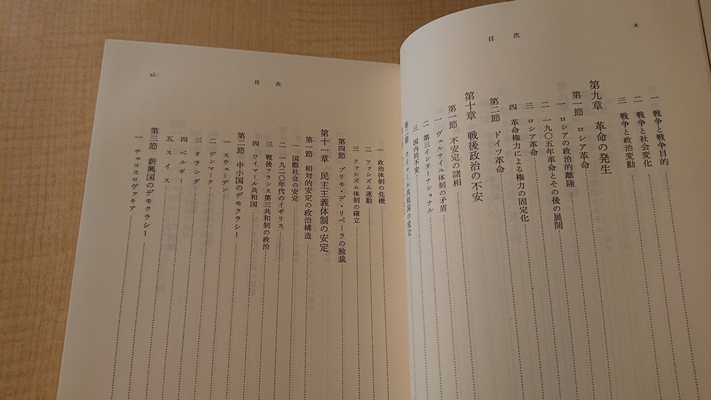 x
目次
一 戦争と戦争目的
二 戦争と社会変化
三 戦争と政治変動
第九章 革命の発生
第一節 ロシア革命
一 ロシアの政治的離陸
二 一九〇五年革命とその後の展開
三 ロシア革命
四 革命権力による権力の固定化
第二節 ドイツ革命
第十章 戦後政治の不安
第一節 不安定の諸相
一 ヴェルサイユ体制の矛盾
二 第三インターナショナル
三 国内的不安
目次
xi
一 政治体制の危機
二 ファシズム運動
三 ファシズム体制の確立
第四節 プリモ・デ・リベーラの独裁
第十一章 民主主義体制の安定
第一節 相対的安定の政治構造
一 国際社会の安定
二 一九二〇年代のイギリス
三 戦後フランス第三共和制の政治
四 ワイマール共和国
第二節 中小国のデモクラシー
一 スウェーデン
二 デンマーク
三 オランダ
四 ベルギー
五 スイス
第三節 新興国のデモクラシー
一 チェコスロヴァキア